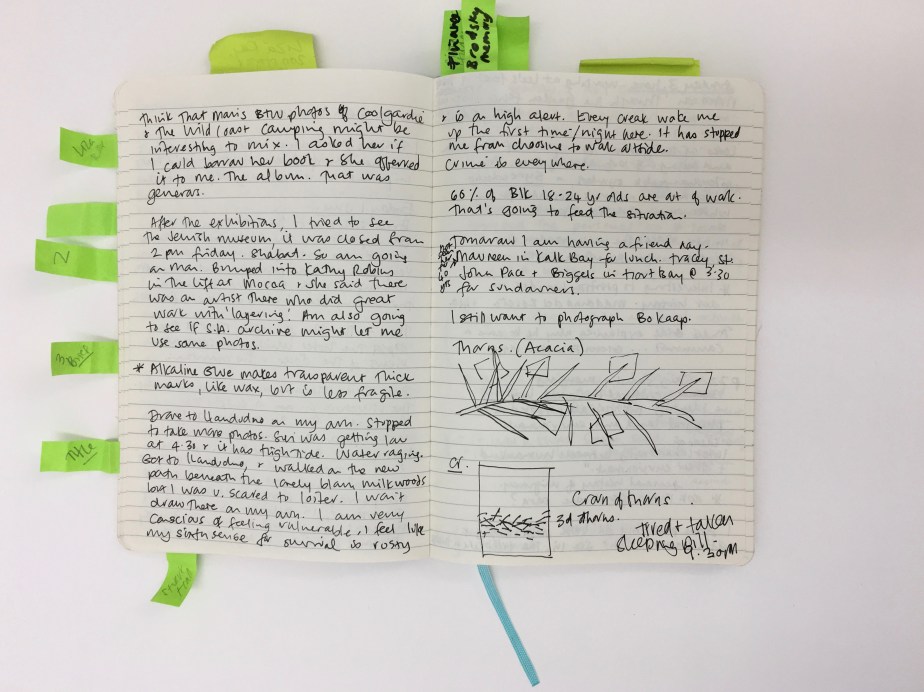 Plinane
Brodsky
memory
Think that mom's B+W photos of Coolgardie
+ the Wild Coast camping might be
interesting to mix. I asked her if
I could borrow her book + she offered
it to me. The album. That was
generous.
After the exhibitions, I tried to see
the Jewish museum, it was closed from
2 pm friday. Shabat. So am going
on mon. Bumped into Kathy Robins
in the lift at Mocaa + she said there
was an artist there who did great
work with 'layering'. Am also going
to see if S.A. archive might let me
use some photos.
* Alkaline Glue makes transparent thick
marks, like wax, but is less fragile.
Drove to Llandudno on my own. Stopped
to take more photos. Sun was getting low
at 4.30 + it was high tide. Water raging.
Got to Llandudno, + walked on the new
path beneath the lovely blown milkwoods
but I was v. scared to loiter. I won't
draw there on my own. I am very
conscious of feeling vulnerable, I feel like
my sixth sense for survival is rusty
+ is on high alert. Every creak woke me
up the first time/night here. It has stopped
me from choosing to walk outside.
Crime is everywhere.
66% of Blk 18-24 yr olds are out of work.
That's going to feed the situation.
Tomorrow I am having a friend day.
Maureen in Kalk Bay for lunch. Tracey, St.
John Pace + Biggels in Hout Bay @ 3:30
for sundowners.
I still want to photograph Bo Kaap.
Thorns. (Acacia)
or.
Crown of thorns.
3d thorns.
tired + taken
sleeping pill -
9:30pm
2
Title